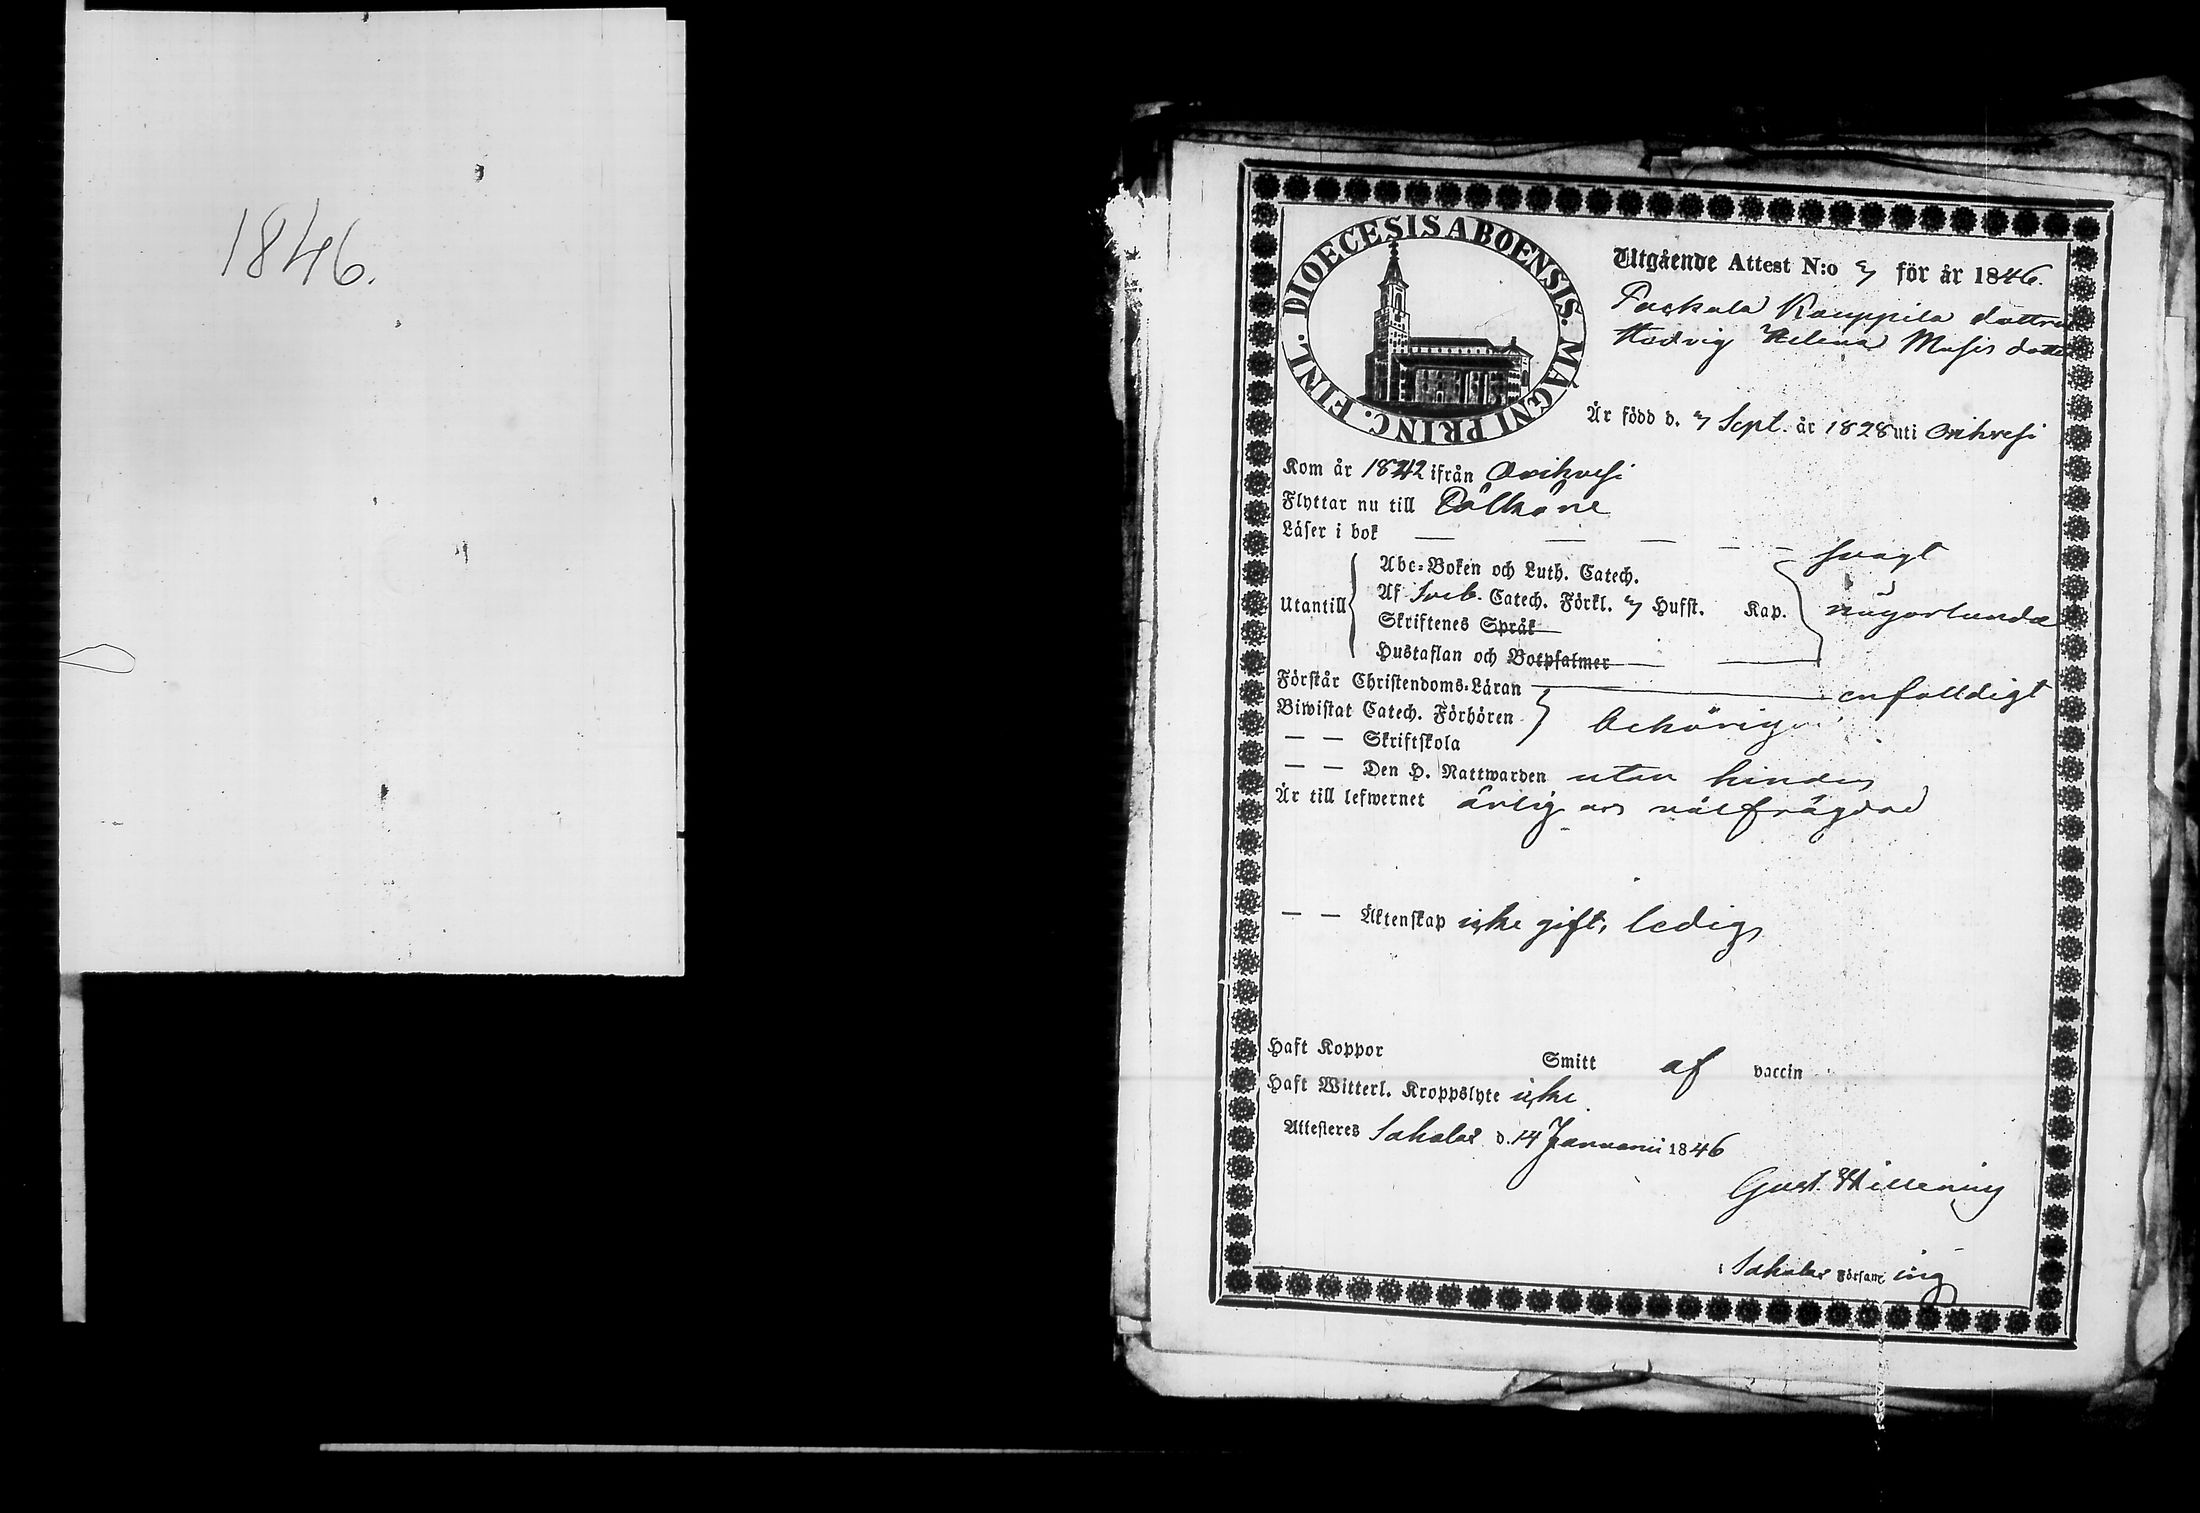 1846.
DIOECESIS ABOENSIS. MAGNI PRINC. FINL.
Utgående Attest N:o 7 för år 1846.
Kauppila dottren
Hedvig Helena Mosis dotter
Är född d. 7 Sept. år 1828 uti Orihvesi
Kom år 1842 ifrån Orihvesi
Flyttar nu till Pälkäne
Läser i bok — — — — — svagt
Abc-Boken och Luth. Catech.
Utantill Af Sveb. Catech. Förkl. 7 Hufst. Kap. någorlunda
Skriftenes Språk
Hustaflan och Botpsalmer
Förstår Christendoms-Läran enfaldigt
Biwistat Catech. Förhören behörigen
— — Skriftskola
— — Den H. Nattwarden utan hinder
Är till lefwernet ärlig och välfrägdad
— — Äktenskap icke gift, ledig
Haft Koppor Smitt af vaccin
Haft Witterl. Kroppslyte icke
Attesteres Sahalax d. 14 Januarii 1846
Gust. Hellening
i Sahalax Församling